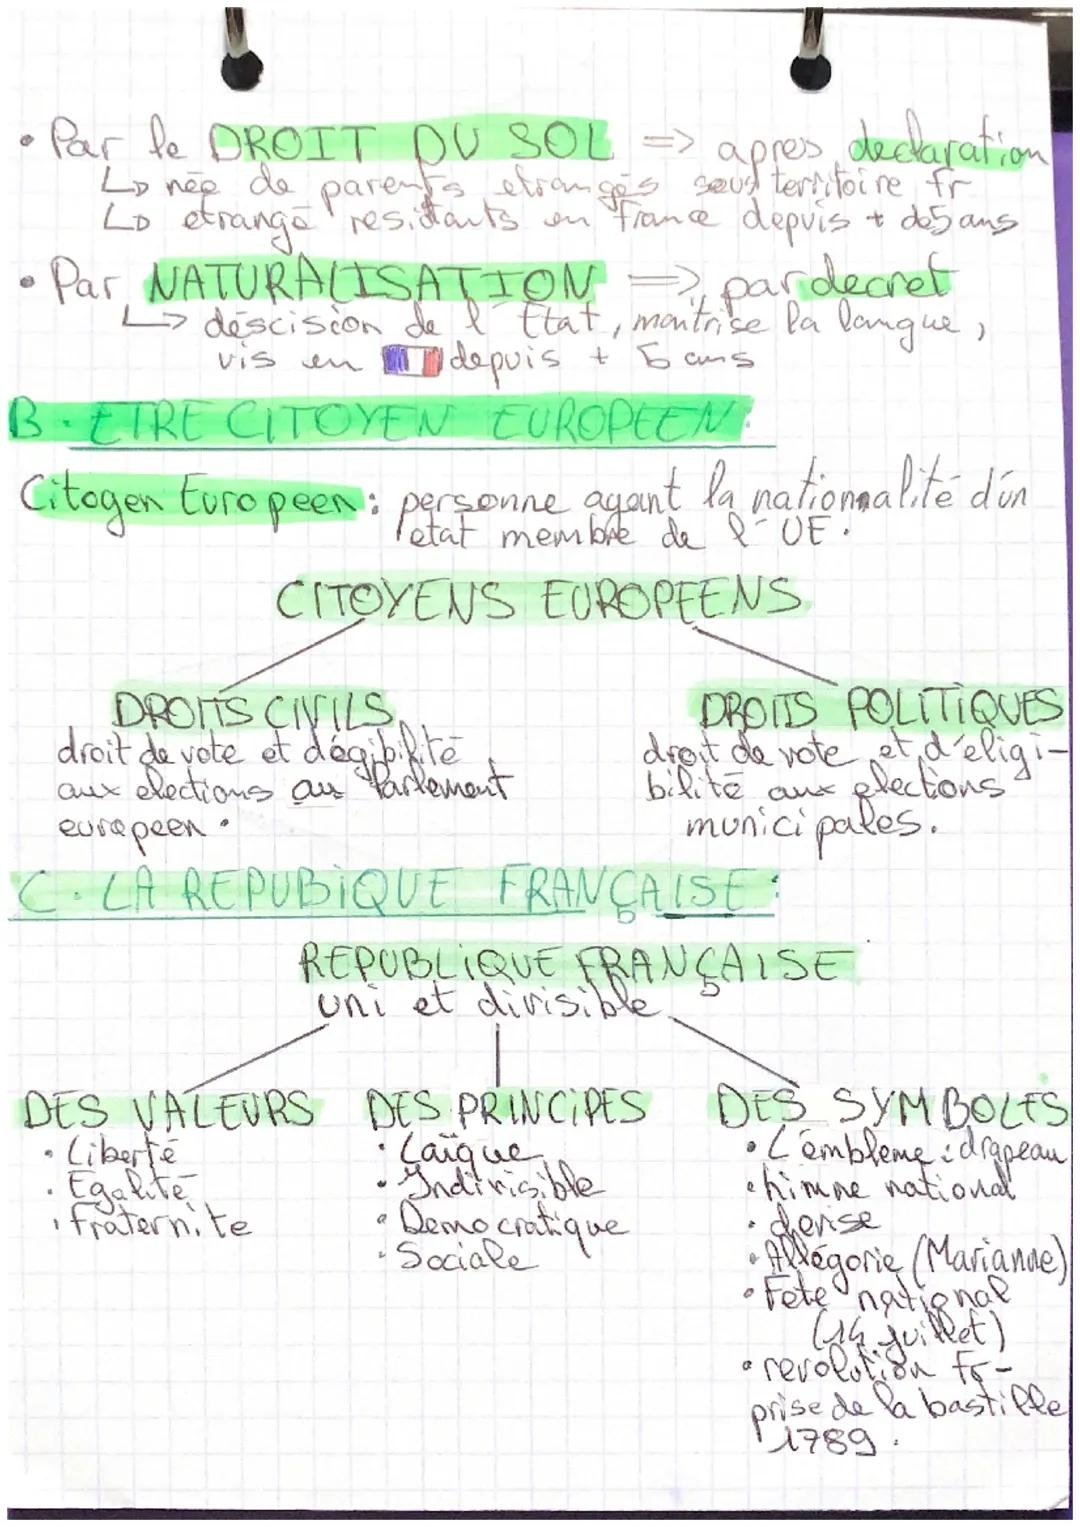 • Par le DROIT DU SOL => apres declaration
↳ née de parents etrangés sous territoire fr
↳ etrangé residtants en France depuis + de 5 ans
• Par NATURALISATION => par decret
↳ déscision de l'Etat, montrise la langue,
vis en depuis + 5 ans
B - ETRE CITOYEN EUROPEEN:
Citoyen Européen : personne ayant la nationnalité d'ún
etat membre de l'UE.
CITOYENS EUROPEENS
DROITS CIVILS
droit de vote et d'égibilité
aux elections au Parlement
europeen.
DROITS POLITIQUES
droit de vote et d'eligi-
bilité aux elections
municipales.
C - LA REPUBIQUE FRANÇAISE :
REPUBLIQUE FRANÇAISE
uni et divisible
DES VALEURS
• Liberté
• Egalité
• Fraternite
DES PRINCIPES
• Laïque
• Indivisible
• Democratique
• Sociale
DES SYMBOLES
• L'embleme : drapeau
• himne national
• devise
• Allégorie (Marianne)
• Fete national
(14 juillet)
• revolution fr -
prise de la bastille
1789.